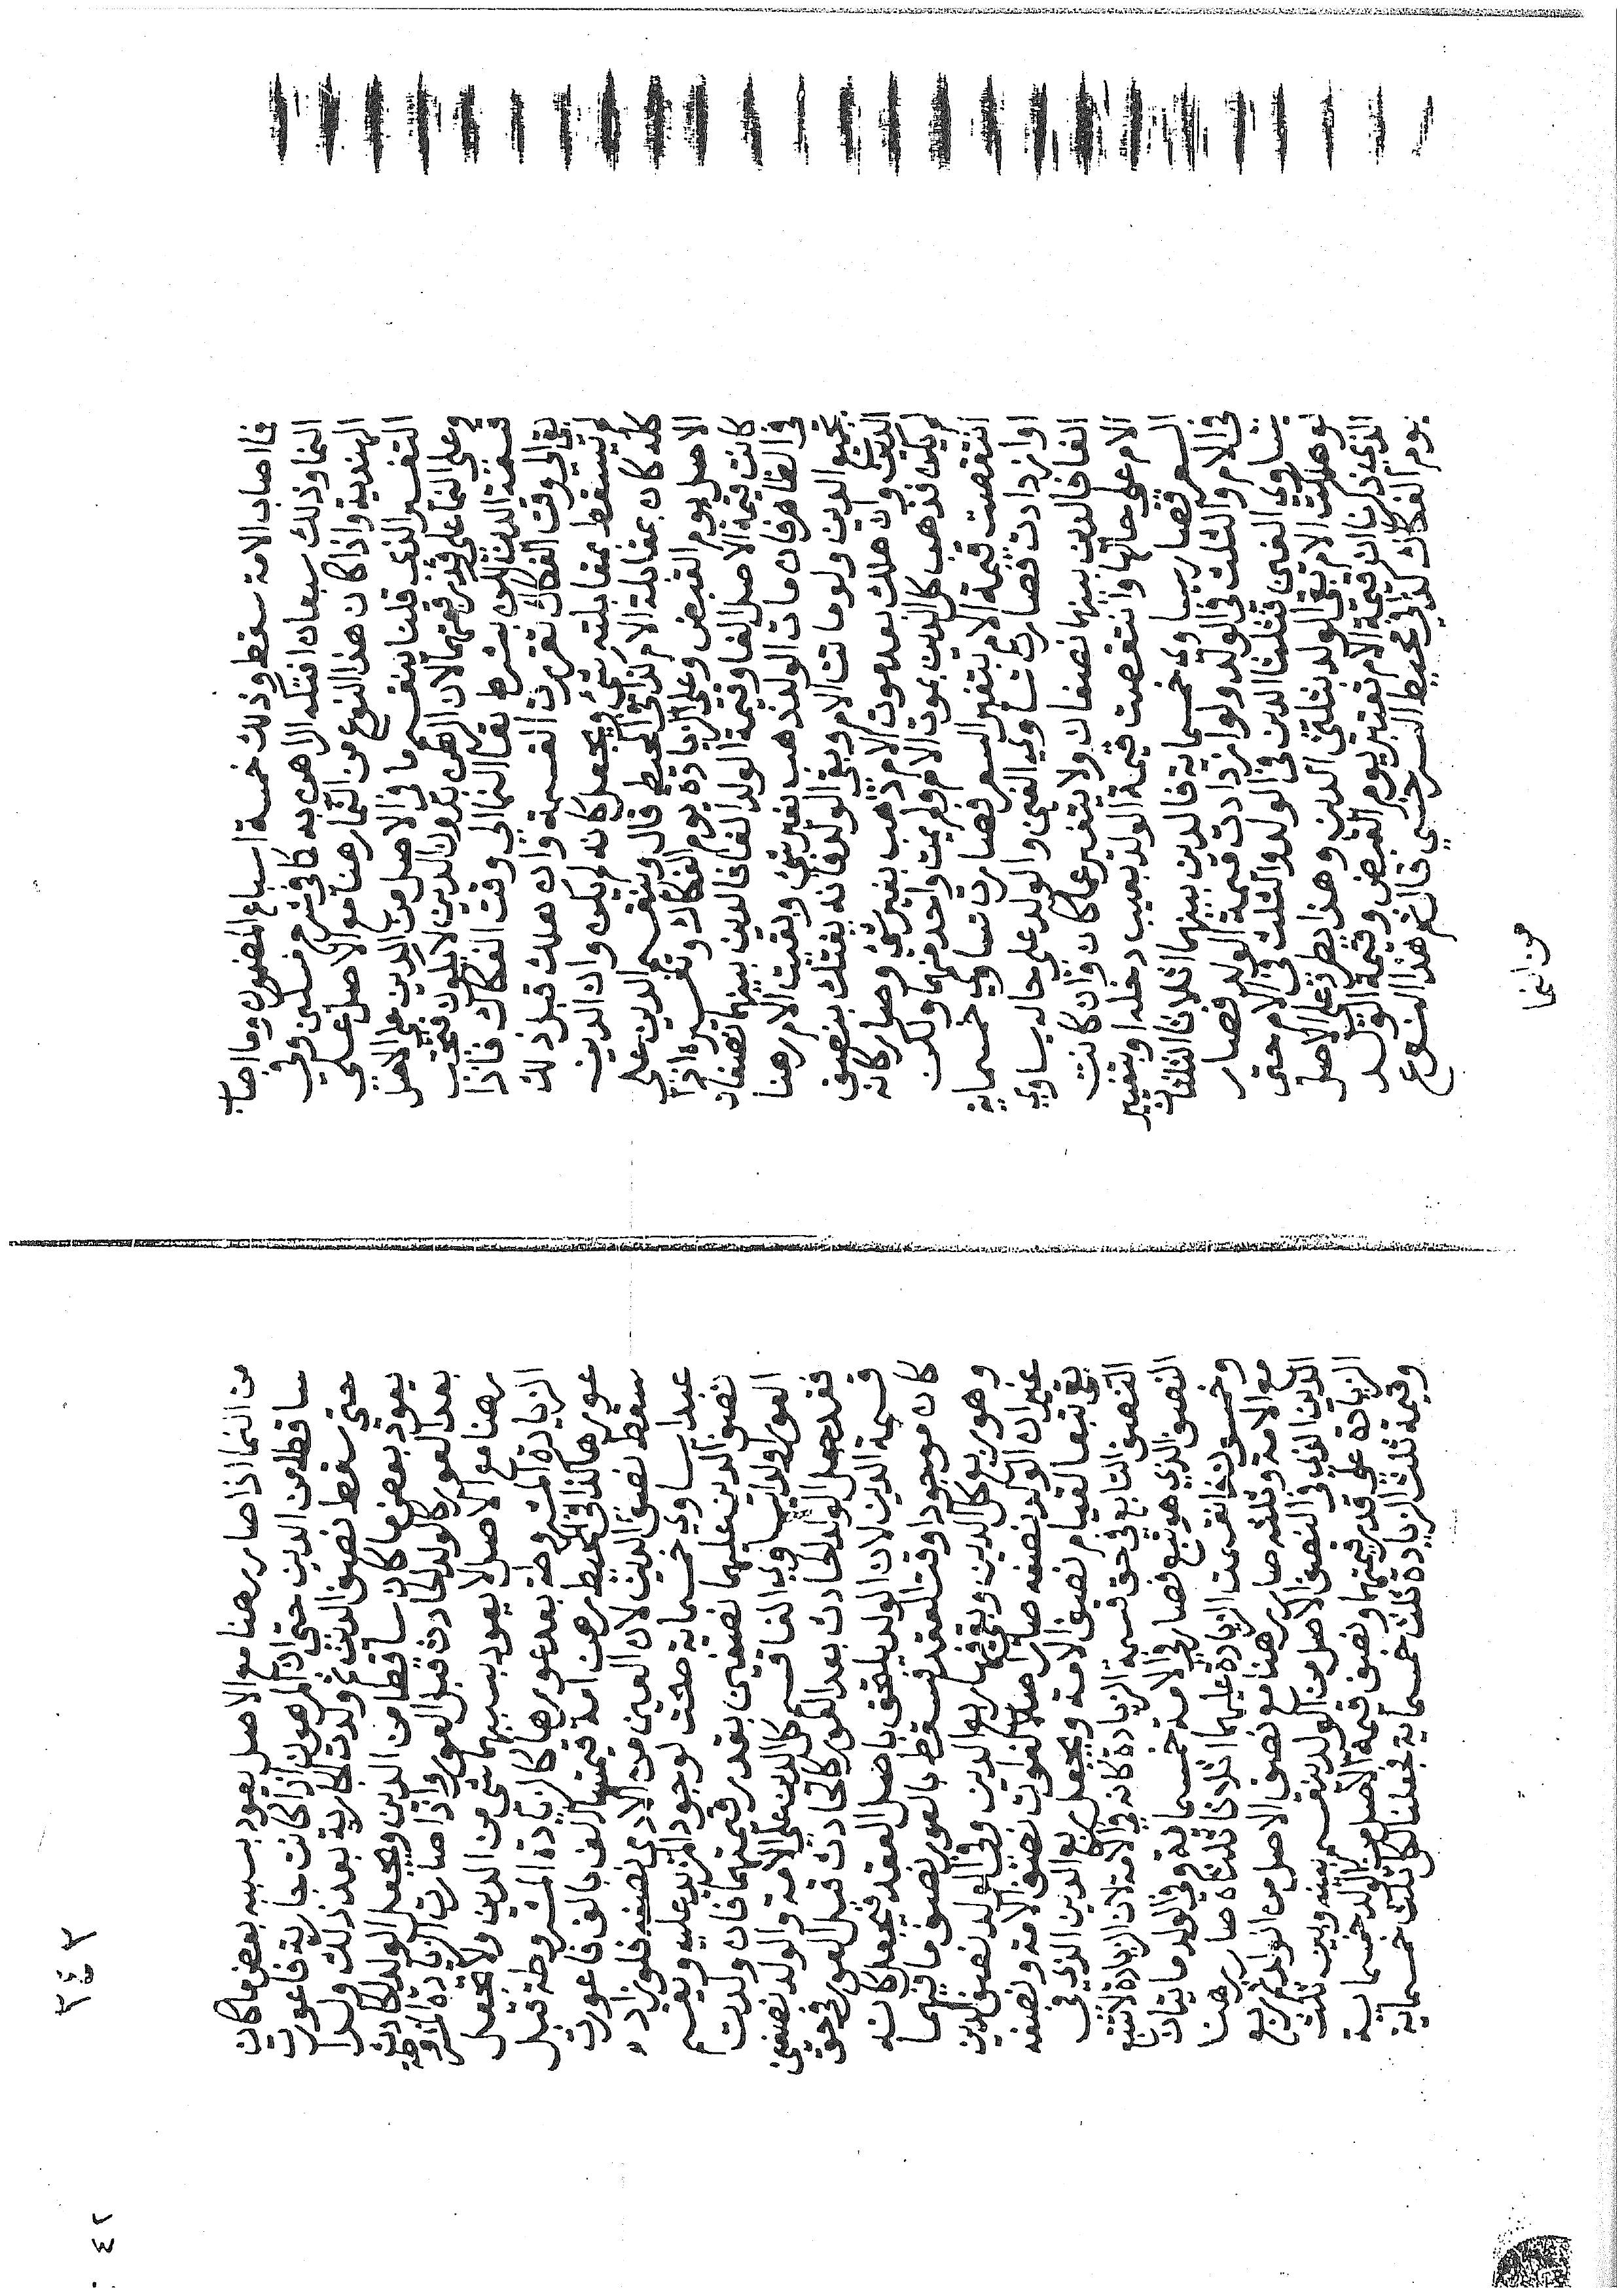 فما اصاب الامة سقط وذلك خمسة اسباع المضمون وما اصاب
النما وذلك سبعان افتكه الراهن به كافي شرح مسكين وفي
الهندية واذا كان هذا النوع من الثمار رهنا مع الاصل على
التفسير الذي قلنا ينقسم ما في الاصل من الدين على الاصل
وعلى النما على قدر قيمتهما لان الرهن بدون الدين لا يكون فيجب
قسمة الدين لكن بشرط بقا النما الى وقت الفكاك فاذا
بقي الى وقت الفكاك تقررت القسمة وان هلك قبل ذلك
لم يسقط بمقابلته شئ ويجعل كانه لم يكن وان الدين
كله كان بمقابلة الام كذا في المحيط قال وينقسم الدين على
الاصل يوم القبض وعلى الزيادة يوم الفكاك وتفسيره اذا
كانت قيمة الاصل الفا وقيمة الولد الفا فالدين بينهما نصفان
في الظاهر فان مات الولد ذهب بغير شئ وبقيت الام رهنا
بجميع الدين ولو ماتت الام وبقي الولد فانه يفتك بنصف
الدين وان هلك بعد موت الام ذهب بغير شئ وصار كانه
لم يكن فذهب كل الدين بموت الام ولو لم يمت واحد منهما ولكن
انتقصت قيمة الام بتغير السعر فصارت تساوي خمسماية
او ازدادت فصارت تساوي الفين والولد على حاله يساوي
الفا فالدين بينهما نصفان ولا يتغير عما كان وان كانت
الام على حالها وانتقصت قيمة الولد بعيب دخله او بتغيير
السعر فصار يساوي خمسماية فالدين بينهما اثلاثا الثلثان
في الام والثلث في الولد ولو ازدادت قيمة الولد فصار
يساوي الفين فثلثا الدين في الولد والثلث في الام حتى
لو هلكت الام بقي الولد بثلثي الدين وهذا يطرد على الاصل
الذي ذكرنا ان قيمة الام تعتبر يوم القبض وقيمة الولد
يوم الفكاك كذا في محيط السرخسي قال ثم هذا النوع
من النما
٢٤٢
من النما اذا صار رهنا مع الاصل يعود بسببه بعض ما كان
ساقطا من الدين حتى ان المرهون اذا كانت جارية فاعورت
حتى سقط نصف الدين ثم ولدت الجارية بعد ذلك ولدا
يعود بعض ما كان ساقطا من الدين ويجعل الولد الحادث
بعد العور كالولد الحادث قبل العور واذا صارت الزيادة المشروطة
رهنا مع الاصل لا يعود بسببها شئ من الدين ولا تجعل
الزيادة المشروطة بعد عورها كالزيادة المشروطة قبل
عورها كذا في المحيط رهن امة قيمتها الف بالف فاعورت
سقط نصف الدين لان العين من الادمي نصفه فلو زاده
عبدا يساوي خمسماية صحت لوجود المزيد عليه ويقسم
نصف الدين عليهما نصفين بقدر قيمتهما فان ولدت
العورا ولدا يساوي الفا قسم كل الدين على الامة والولد نصفين
فقد جعل الولد الحادث بعد العور كالحادث قبل العور في حق
قسمة الدين لان الولد يلتحق باصل العقد فيجعل كانه
كان موجودا وقت العقد فسقط بالعور نصف ما فيها
وهو ربع كل الدين وبقي فيها ربع الدين وفي الولد نصف الدين
غير ان الولد نصفه صار اصلا لفوات نصف الامة ونصفه
بقي تبعا لقيام نصف الامة ويجعل ربع الدين الذي في
النصف التابع في حق قسمة الزيادة كانه في الامة لان الزيادة لا تتبع
النصف الذي هو تبع فصار في الامة خمسماية وفي الولد مايتان
وخمسون فانقسمت الزيادة عليهما اثلاثا ثلثاه صار رهنا
مع الامة وثلثه صار رهنا مع نصف الاصل من الولد ثم ربع
الدين الذي في النصف الاصل من الولد ينقسم بينه وبين ثلث
الزيادة على قدر قيمتهما ونصف قيمة الاصل من الولد خمسماية
وقيمة ثلث الزيادة ثلث خمسماية فجعلنا كل ثلث خمسماية
٤٢